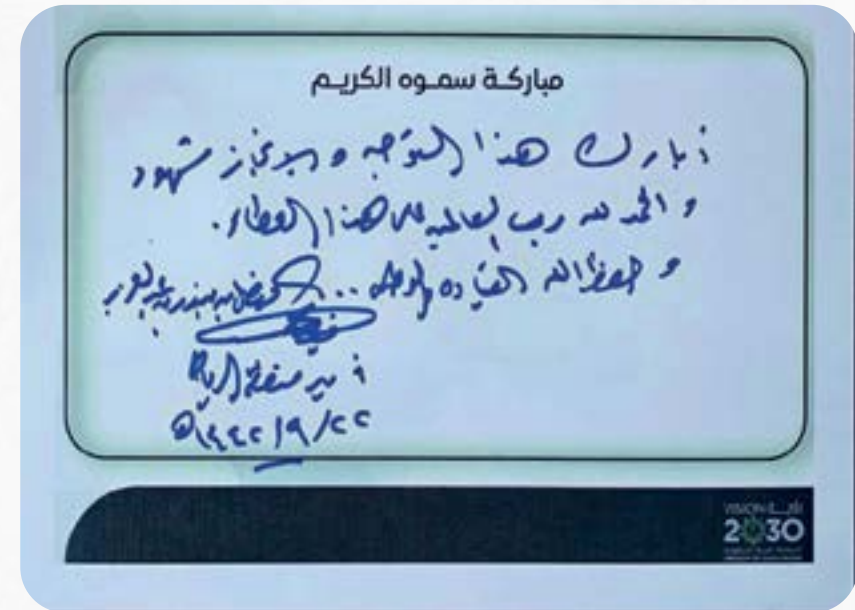 مباركة سموه الكريم
أبارك هذا التوجه والإنجاز مشهود
والحمد لله رب العالمين على هذا العطاء.
وحفظ الله القيادة والوطن .. فيصل بن بندر بن عبدالعزيز
أمير منطقة الرياض
١٤٤٢/٩/٢٢هـ
VISION رؤية
2030